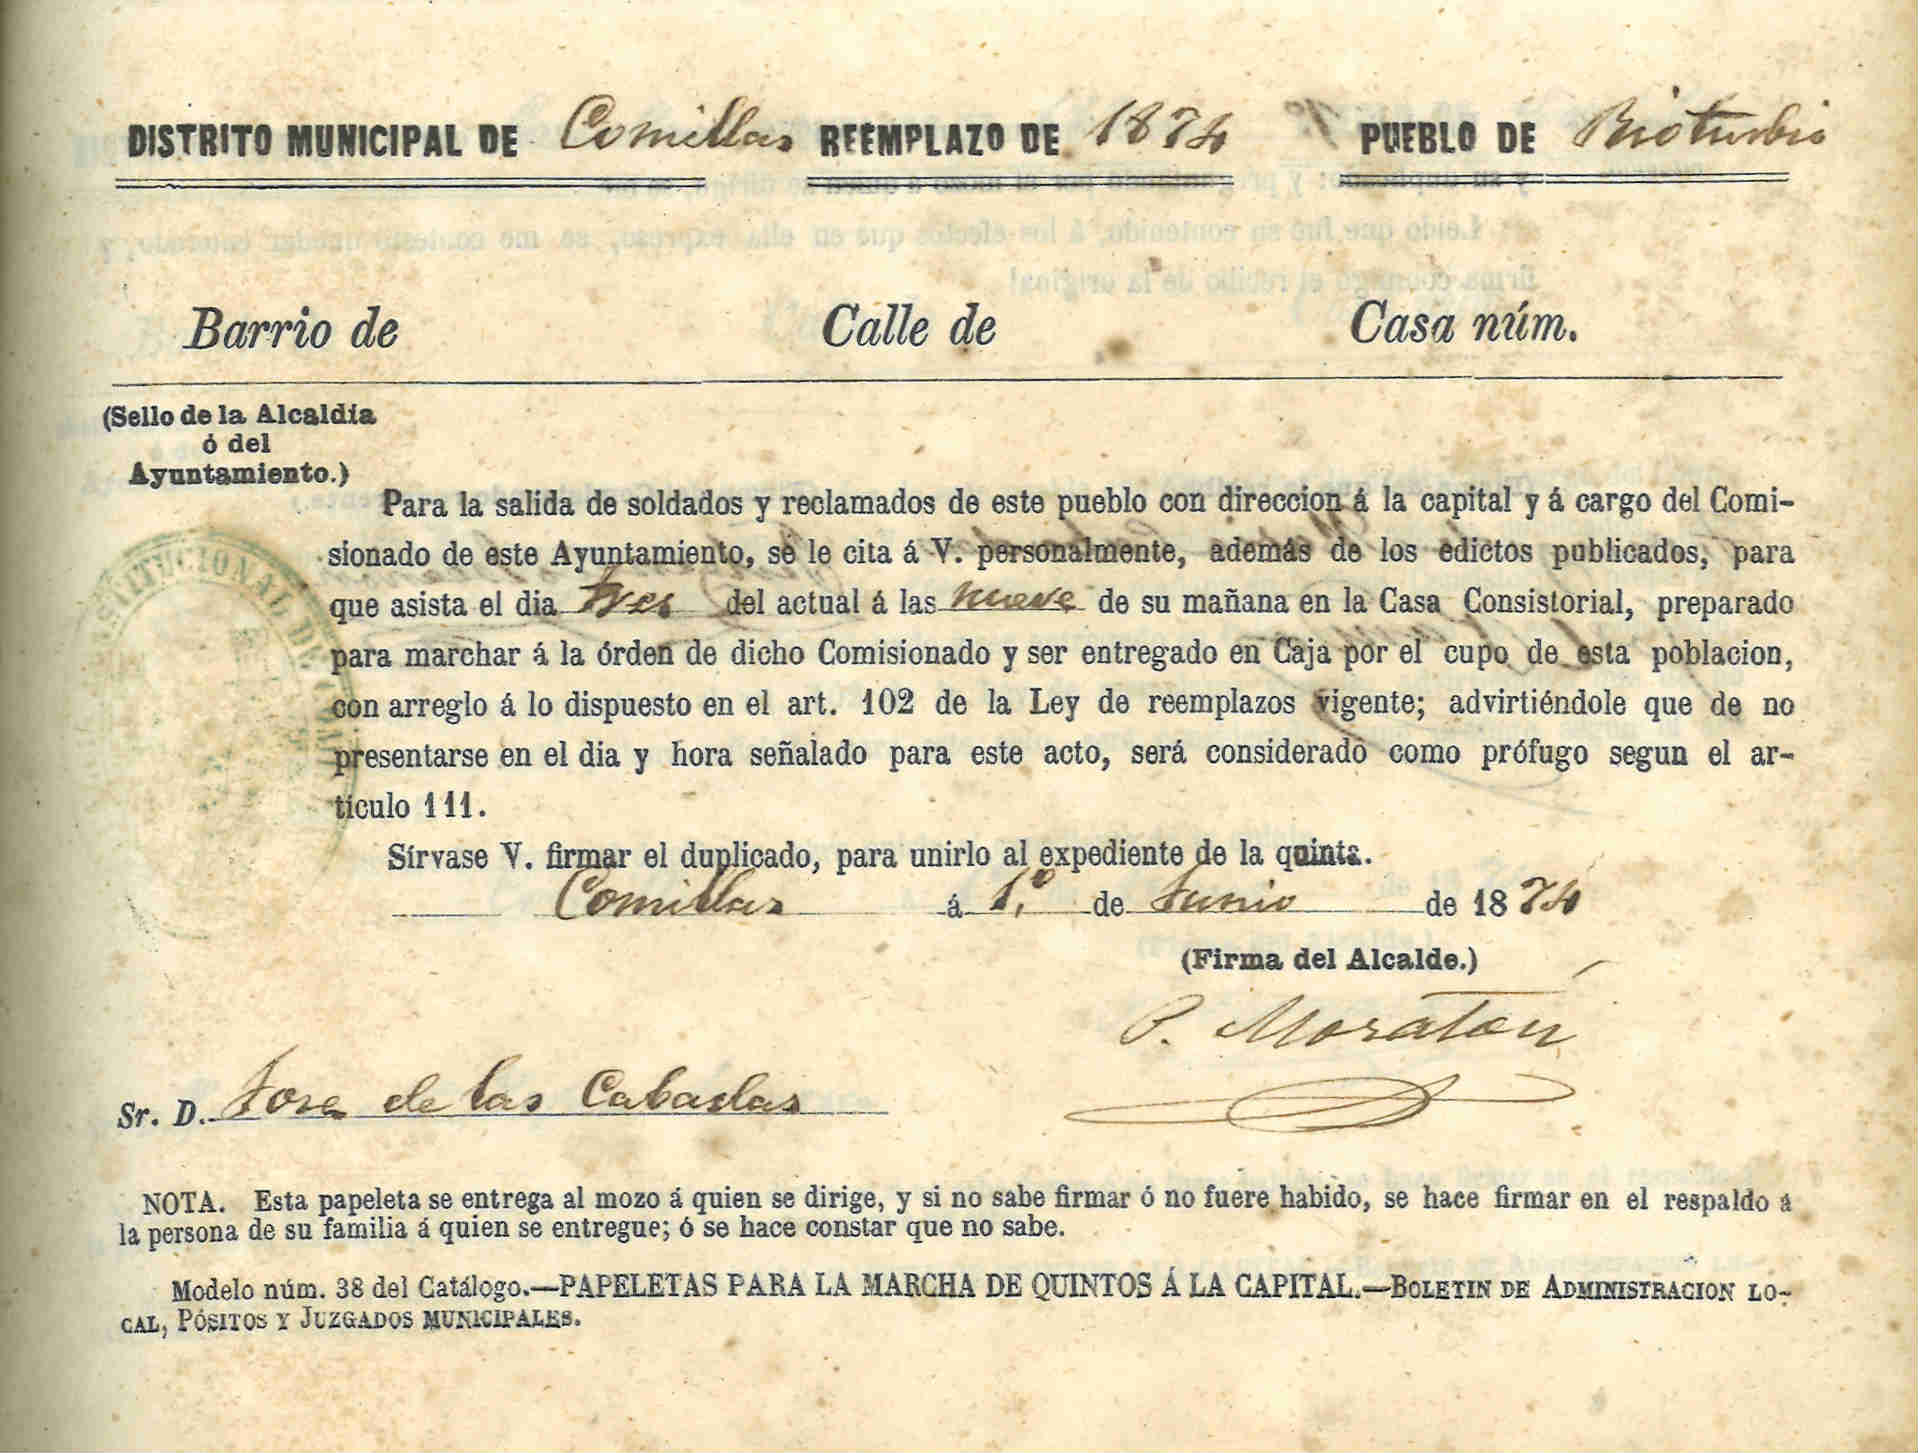 DISTRITO MUNICIPAL DE Comillas REEMPLAZO DE 1874 PUEBLO DE Rioturbio
Barrio de Calle de Casa núm.
(Sello de la Alcaldía
ó del
Ayuntamiento.)
Para la salida de soldados y reclamados de este pueblo con direccion á la capital y á cargo del Comi-
sionado de este Ayuntamiento, se le cita á V. personalmente, además de los edictos publicados, para
que asista el dia tres del actual á las nueve de su mañana en la Casa Consistorial, preparado
para marchar á la órden de dicho Comisionado y ser entregado en Caja por el cupo de esta poblacion,
con arreglo á lo dispuesto en el art. 102 de la Ley de reemplazos vigente; advirtiéndole que de no
presentarse en el dia y hora señalado para este acto, será considerado como prófugo segun el ar-
tículo 111.
Sírvase V. firmar el duplicado, para unirlo al expediente de la quinta.
Comillas á 1.º de Junio de 1874
(Firma del Alcalde.)
P. Moratón
Sr. D. Jose de las Cabadas
NOTA. Esta papeleta se entrega al mozo á quien se dirige, y si no sabe firmar ó no fuere habido, se hace firmar en el respaldo á
la persona de su familia á quien se entregue; ó se hace constar que no sabe.
Modelo núm. 38 del Catálogo.—PAPELETAS PARA LA MARCHA DE QUINTOS Á LA CAPITAL.—BOLETIN DE ADMINISTRACION LO-
CAL, PÓSITOS Y JUZGADOS MUNICIPALES.